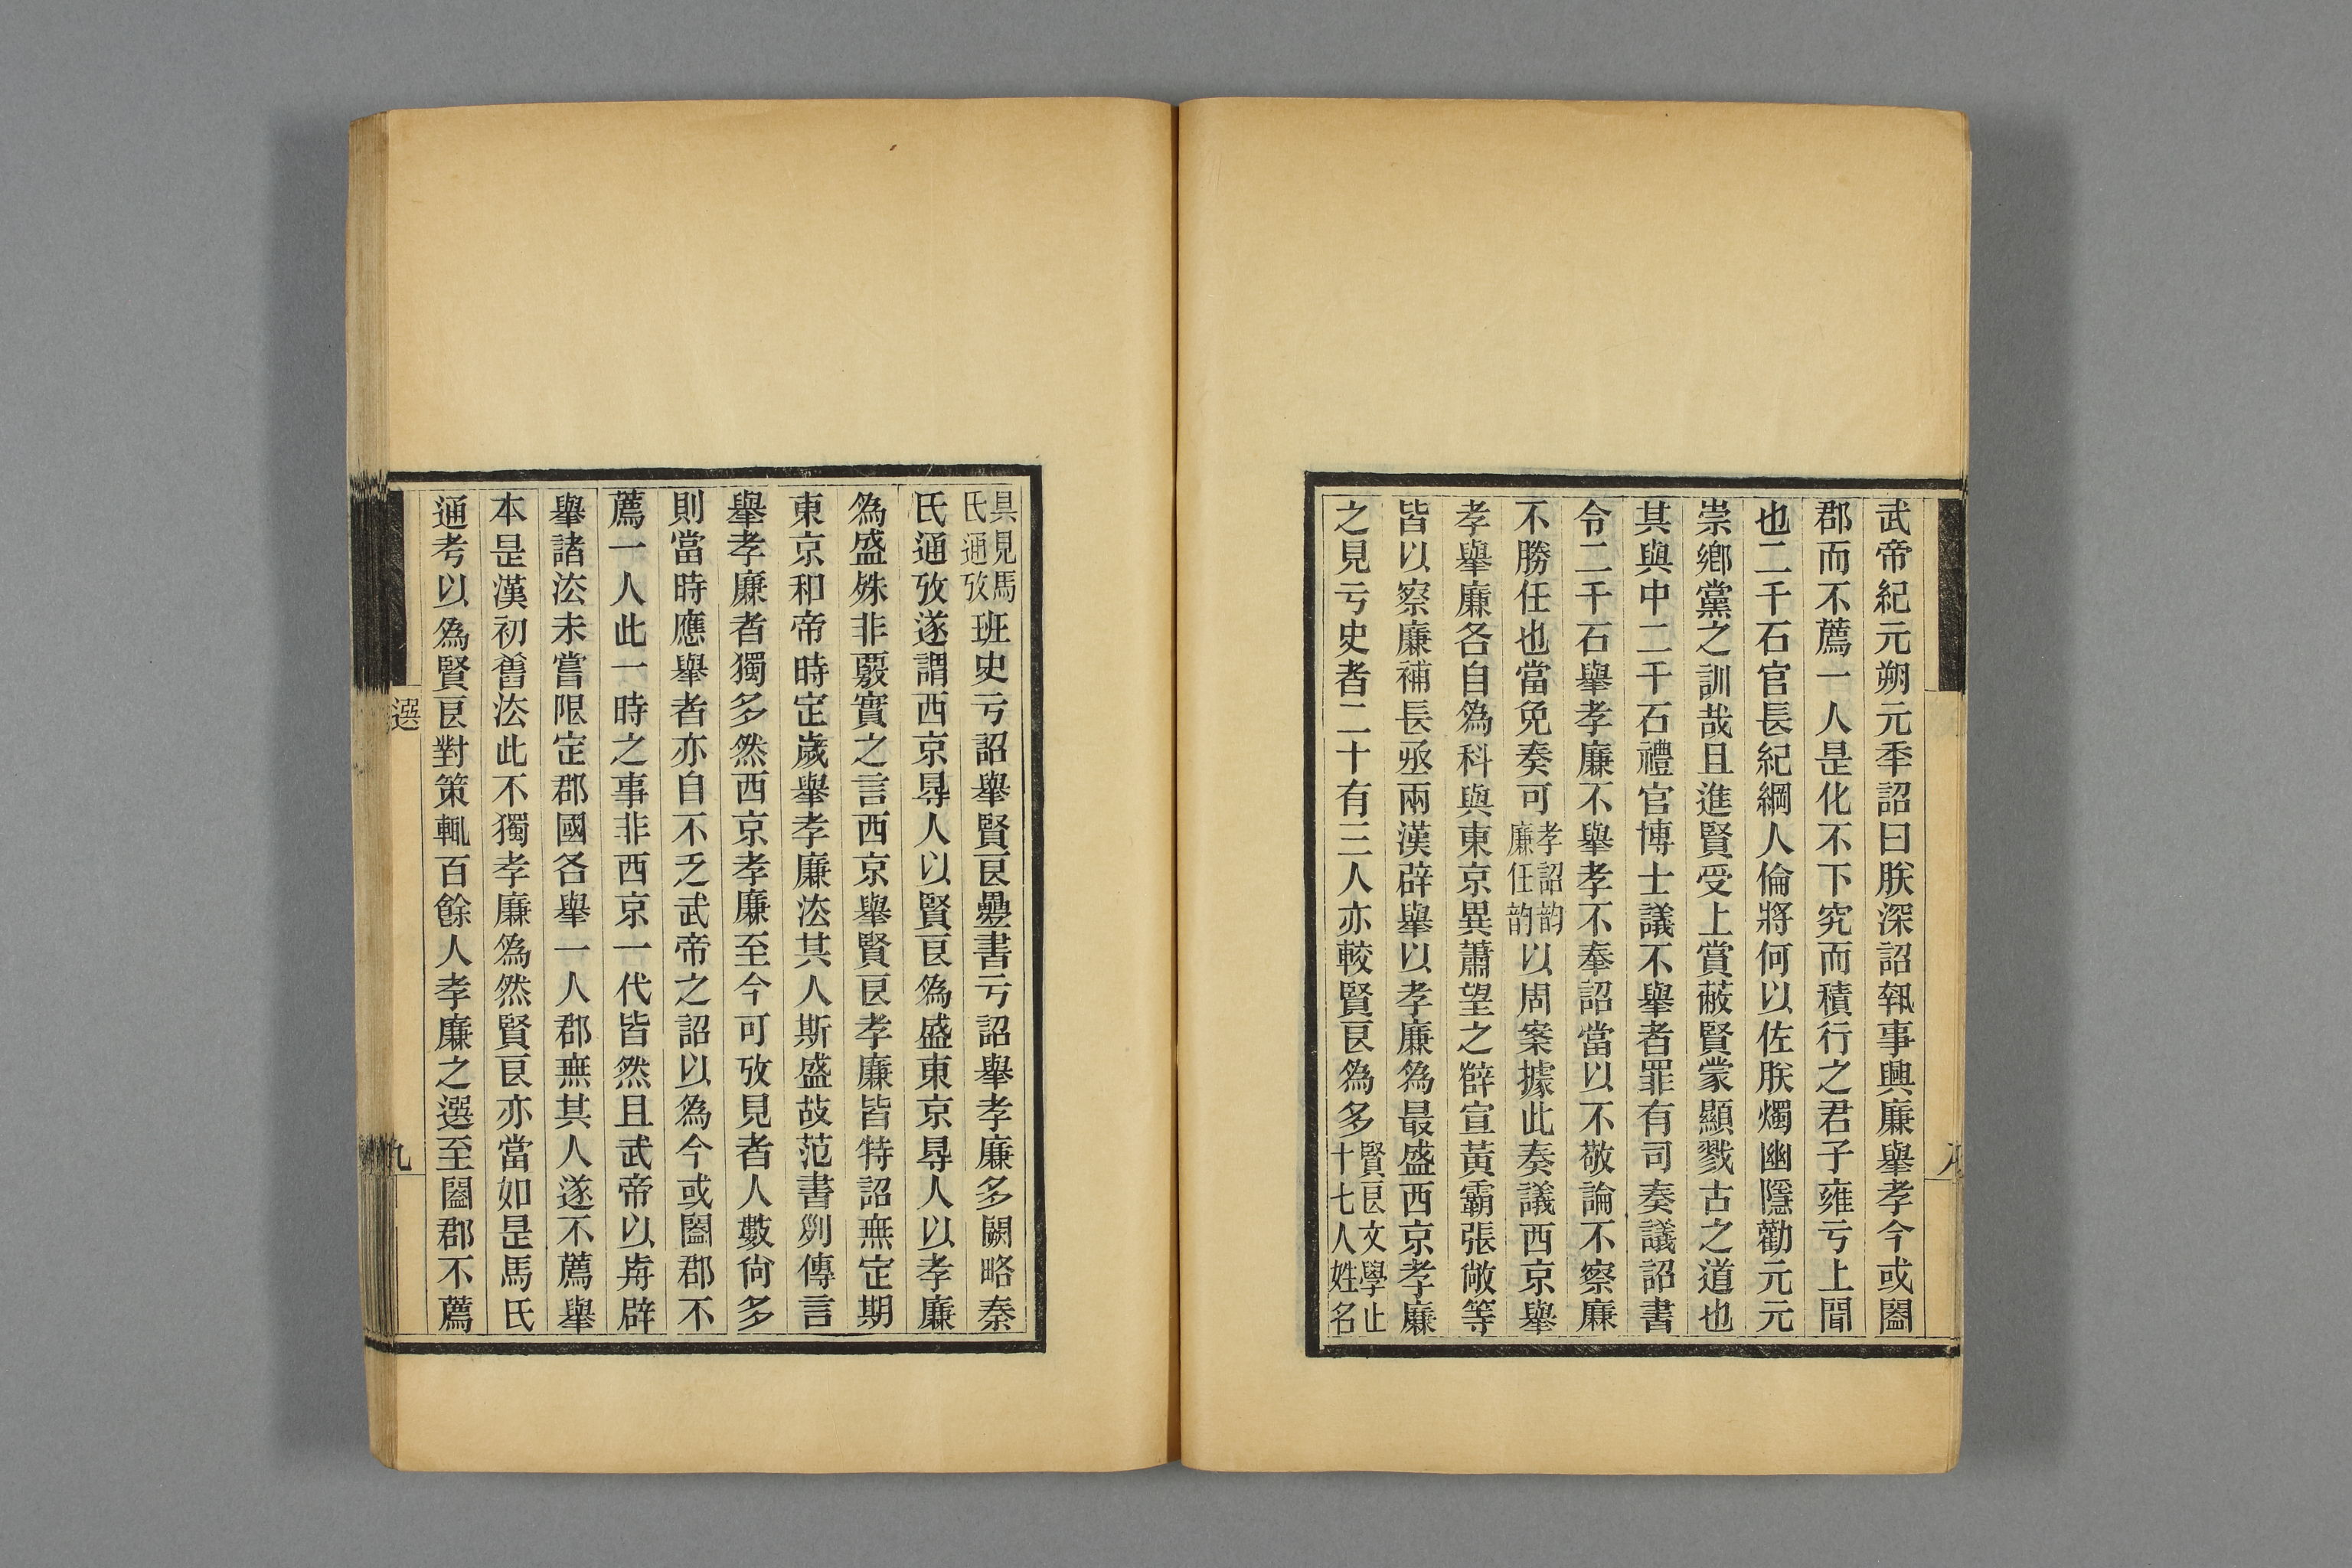 武帝紀元朔元秊詔曰朕深詔執事興廉舉孝今或闔
郡而不薦一人是化不下究而積行之君子雍亏上聞
也二千石官長紀綱人倫將何以佐朕燭幽隱勸元元
崇鄉黨之訓哉且進賢受上賞蔽賢蒙顯戮古之道也
其與中二千石禮官博士議不舉者罪有司奏議詔書
令二千石舉孝廉不舉孝不奉詔當以不敬論不察廉
不勝任也當免奏可孝詔韵廉任韵以周案據此奏議西京舉
孝舉廉各自爲科與東京異蕭望之辥宣黃霸張敞等
皆以察廉補長丞兩漢辟舉以孝廉爲最盛西京孝廉
之見亏史者二十有三人亦較賢良爲多賢良文學止十七人姓名
具見馬氏通攷班史亏詔舉賢良曡書亏詔舉孝廉多闕略秦
氏通攷遂謂西京得人以賢良爲盛東京得人以孝廉
爲盛殊非覈實之言西京舉賢良孝廉皆特詔無定期
東京和帝時定歲舉孝廉法其人斯盛故范書列傳言
舉孝廉者獨多然西京孝廉至今可攷見者人數尙多
則當時應舉者亦自不乏武帝之詔以爲今或闔郡不
薦一人此一時之事非西京一代皆然且武帝以歬辟
舉諸法未嘗限定郡國各舉一人郡無其人遂不薦舉
本是漢初舊法此不獨孝廉爲然賢良亦當如是馬氏
通考以爲賢良對策輒百餘人孝廉之選至闔郡不薦
選
九